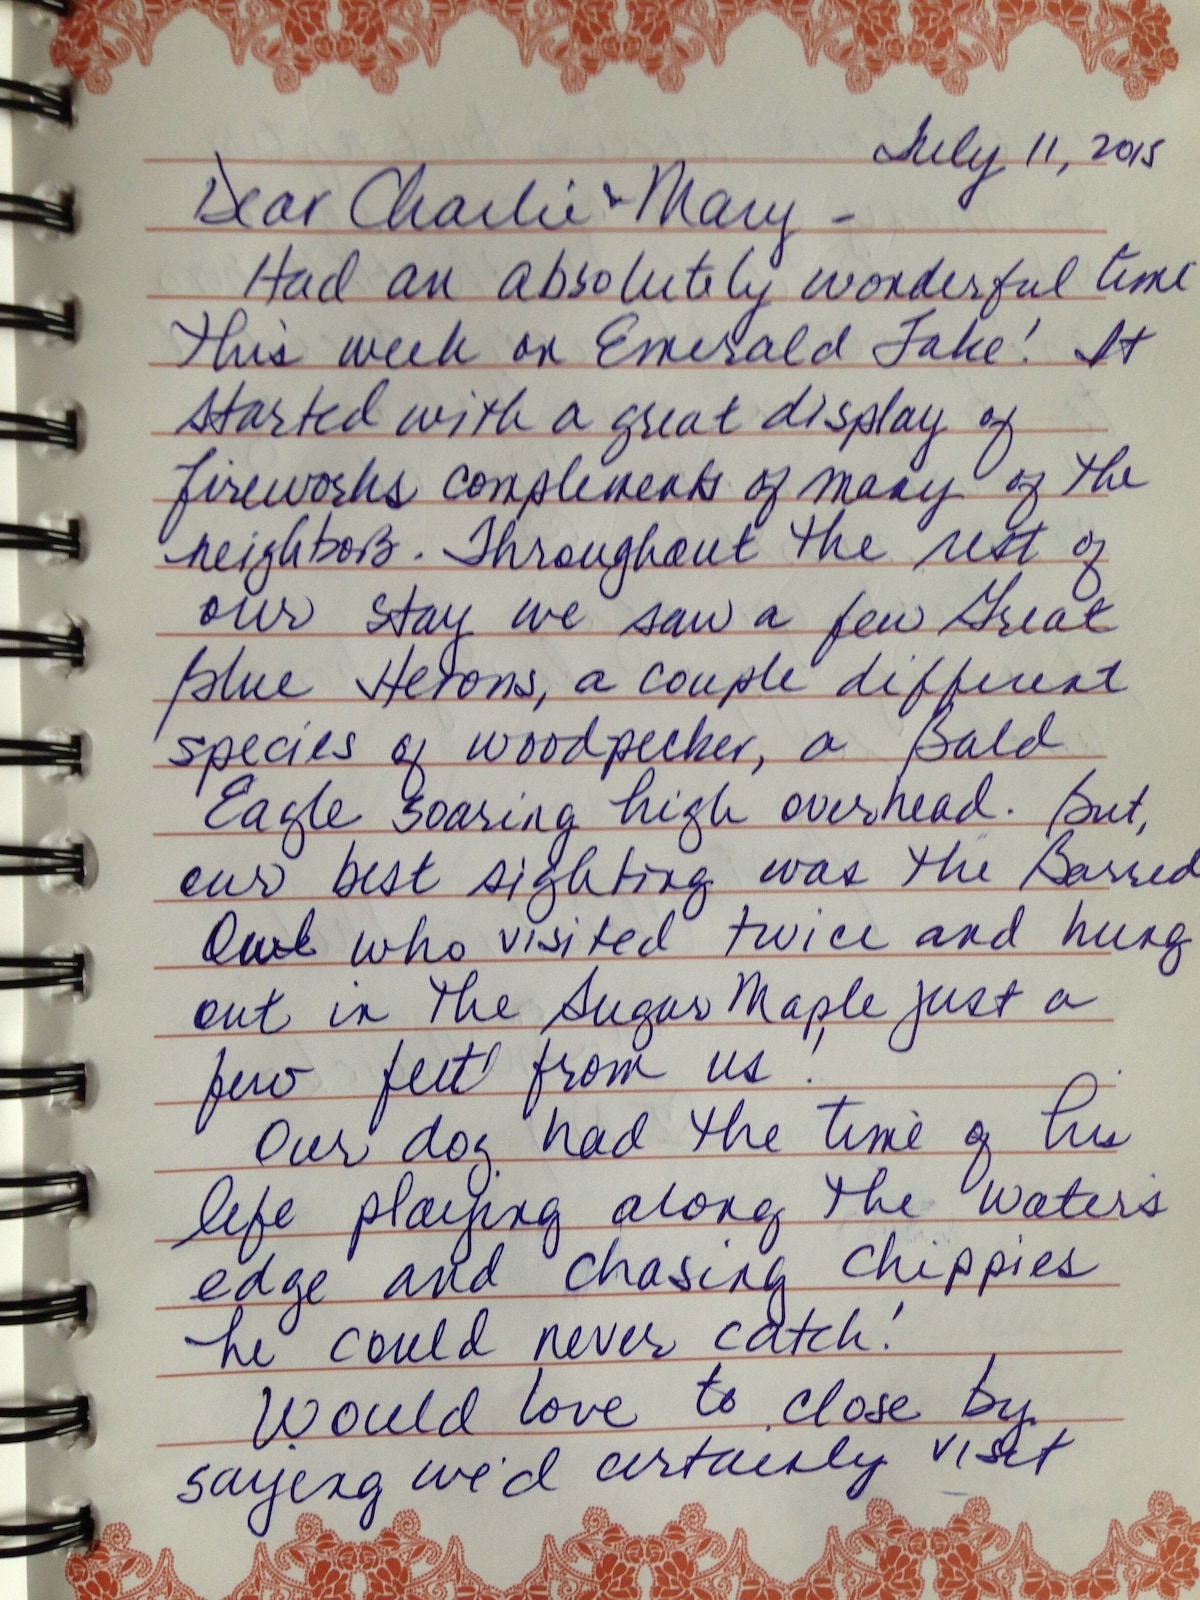 July 11, 2015
Dear Charlie & Mary -
Had an absolutely wonderful time
this week on Emerald Lake! It
started with a great display of
fireworks complements of many of the
neighbors. Throughout the rest of
our stay we saw a few Great
Blue Herons, a couple different
species of woodpecker, a Bald
Eagle soaring high overhead. But,
our best sighting was the Barred
Owl who visited twice and hung
out in the Sugar Maple just a
few feet from us!
Our dog had the time of his
life playing along the water's
edge and chasing chippies
he could never catch!
Would love to close by
saying we'd certainly visit